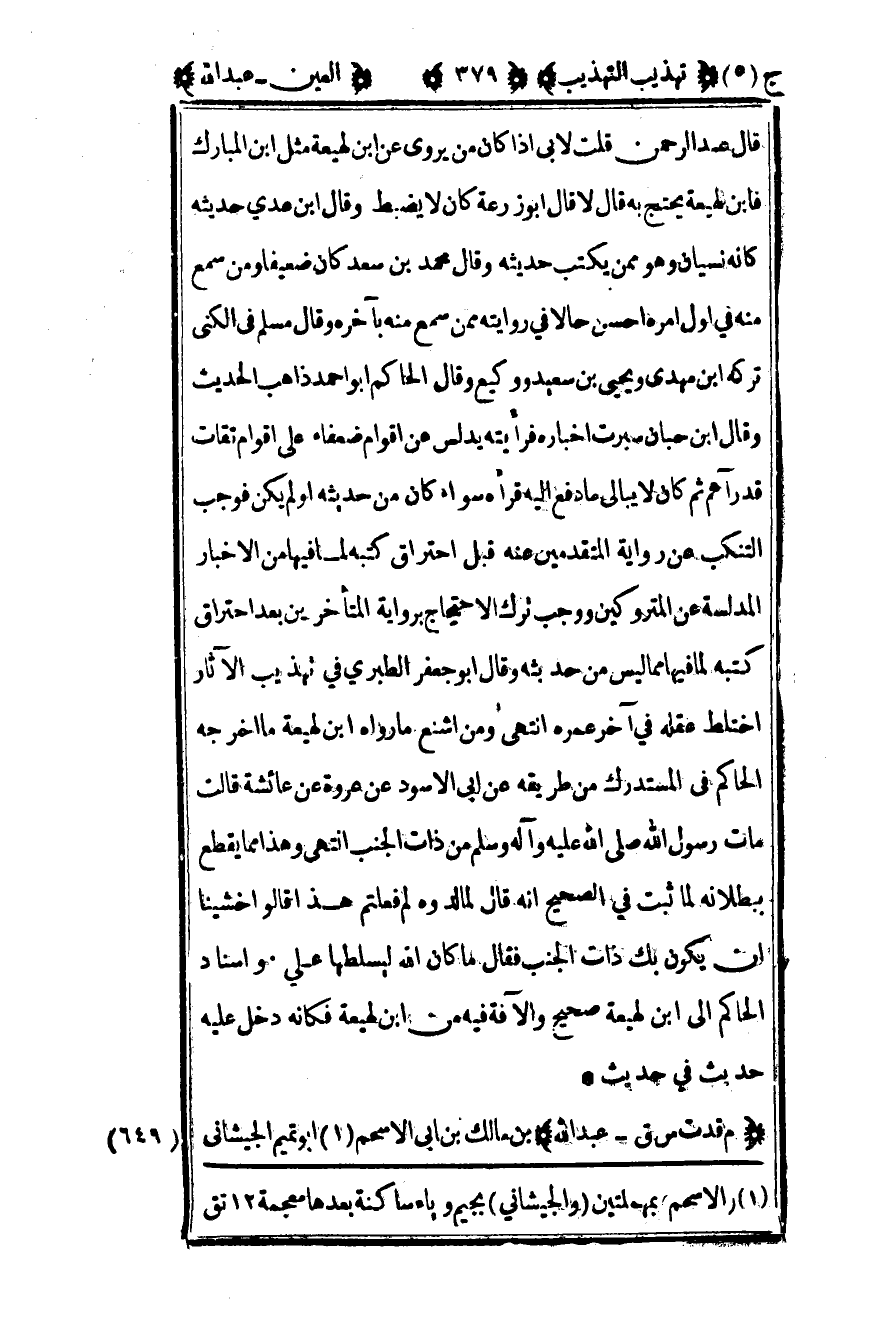 ج (٥) ﴿ تهذيب التهذيب ﴾ ﴿ ٣٧٩ ﴾ ﴿ العين ـ عبدالله ﴾
قال عبدالرحمن قلت لابى اذا كان من يروى عن ابن لهيعة مثل ابن المبارك
فابن لهيعة يحتج به قال لا قال ابوزرعة كان لا يضبط وقال ابن عدي حديثه
كانه نسيان وهو ممن يكتب حديثه وقال محمد بن سعد كان ضعيفا ومن سمع
منه في اول امره احسن حالا في روايته ممن سمع منه بآخره وقال مسلم فى الكنى
تركه ابن مهدى ويحيى بن سعيد ووكيع وقال الحاكم ابو احمد ذاهب الحديث
وقال ابن حبان سبرت اخباره فرأيته يدلس عن اقوام ضعفاء على اقوام ثقات
قد رآهم ثم كان لا يبالى ما دفع اليه قرأه سواء كان من حديثه او لم يكن فوجب
التنكب عن رواية المتقدمين عنه قبل احتراق كتبه لما فيها من الاخبار
المدلسة عن المتروكين ووجب ترك الاحتجاج برواية المتأخرين بعد احتراق
كتبه لما فيها مما ليس من حديثه وقال ابو جعفر الطبري في تهذيب الآثار
اختلط عقله في آخر عمره انتهى ومن اشنع ما رواه ابن لهيعة ما اخرجه
الحاكم فى المستدرك من طريقه عن ابى الاسود عن عروة عن عائشة قالت
مات رسول الله صلى الله عليه وآله وسلم من ذات الجنب انتهى وهذا مما يقطع
ببطلانه لما ثبت في الصحيح انه قال لما لدوه لم فعلتم هذا قالو اخشينا
ان يكون بك ذات الجنب فقال ما كان الله ليسلطها على ٠ واسناد
الحاكم الى ابن لهيعة صحيح والآفة فيه من ابن لهيعة فكانه دخل عليه
حديث في حديث •
﴿ م قدت س ق ـ عبدالله ﴾ بن مالك بن ابى الاسحم (١) ابو تميم الجيشانى (٦٤٩)
(١) الاسحم بمهملتين (والجيشاني) بجيم وياء ساكنة بعدها معجمة ١٢ تق